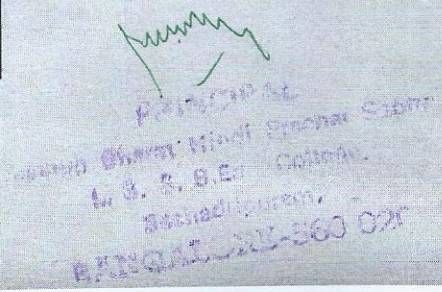 PRINCIPAL
Bharat Hindi Prachar Sabha
B.Ed College.
Seshadripuram,
BANGALORE-560 020